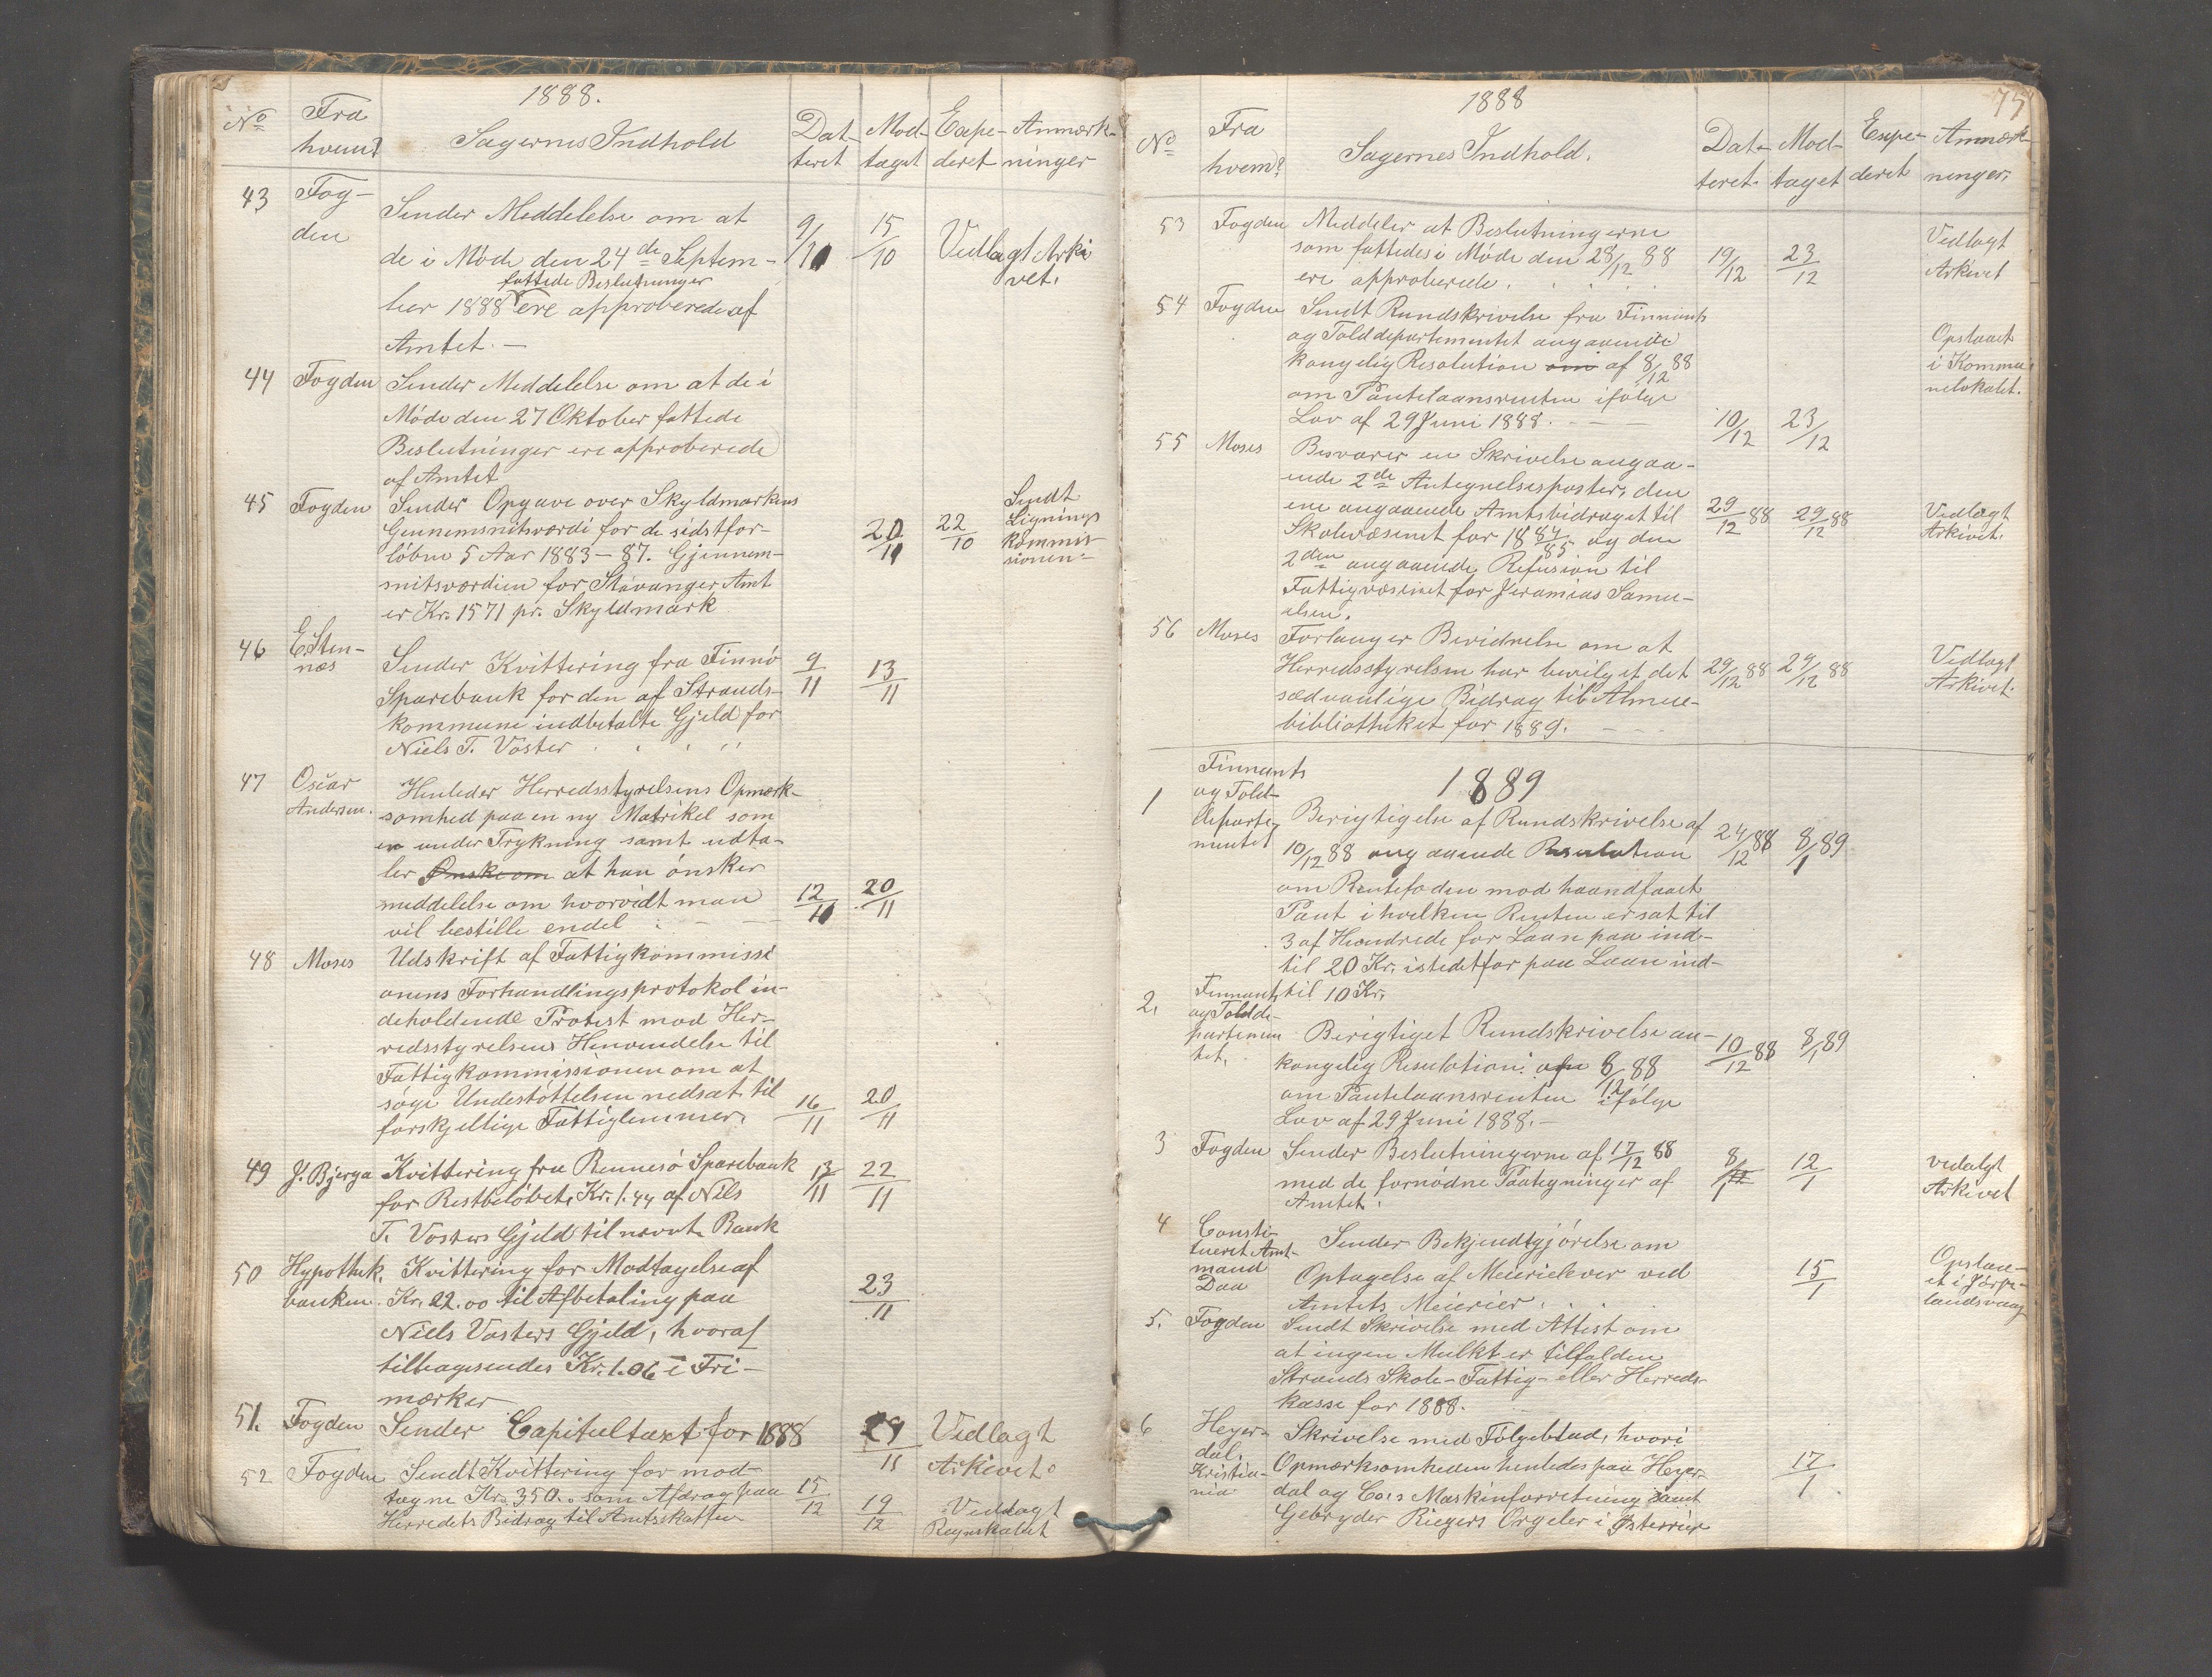 1888.
No Fra hvem? Sagernes Indhold Dat-teret Mod-taget Expe-deret Anmærk-ninger
43 Fog-den
Sender Meddelelse om at
de i Møde den 24de Septem-
fattede Beslutninger
ber 1888 ere approberede af
Amtet. —
9/10 15/10 Vedlagt Arki
vet.
44 Fogden Sender Meddelelse om at de i
Møde den 27 Oktober fattede
Beslutninger ere approberede
af Amtet
45 Fogden Sender Opgave over Skyldmarkens
Gennemsnitsværdi for de sidstfor-
løbne 5 Aar 1883-87. Gjennem-
snitsværdien for Stavanger Amt
er Kr. 1571 pr. Skyldmark
20/11 22/10 Sendt
Lignings
kommis
sionen
46 E. Sten-
næs
Sender Kvittering fra Finnø
Sparebank for den af Strands-
kommune indbetalte Gjeld for
Niels T. Voster
9/11 13/11
47 Oscar
Andersen.
Henleder Herredsstyrelsens Opmærk-
somhed paa en ny Matrikel som
er under Trykning samt udta-
ler Ønske om at han ønsker
meddelelse om hvorvidt man
vil bestille endel
12/11 20/11
48 Moses Udskrift af Fattigkommissi
onens Forhandlingsprotokol in-
deholdende Protest mod Her-
redsstyrelsens Henvendelse til
Fattigkommissionen om at
søge Understøttelsen nedsat til
forskjellige Fattiglemmer.
16/11 20/11
49 J. Bjerga Kvittering fra Rennesø Sparebank
for Restbeløbet, Kr. 1.44 af Niels
T. Vosters Gjeld til nævnte Bank
13/11 22/11
50 Hypothek.
banken.
Kvittering for Modtagelse af
Kr. 22.00 til Afbetaling paa
Niels Vosters Gjeld, hvoraf
tilbagesendes Kr. 1.06 i Fri-
mærker
23/11
51. Fogden Sender Capiteltaxt for 1888
29/11 Vedlagt
Arkivet.
52 Fogden Sendt Kvittering for mod-
tagne Kr. 350.. som Afdrag paa
Herredets Bidrag til Amtsskatten
15/12 19/12 Vedlagt
Regnskabet
75
1888
No Fra hvem? Sagernes Indhold. Dat-teret Mod-taget Expe-deret Anmærk-ninger.
53 Fogden Meddeler at Beslutningerne
som fattedes i Møde den 28/12 88
ere approberede.
19/12 23/12 Vedlagt
Arkivet
54 Fogden Sendt Rundskrivelse fra Finnants
og Tolddepartementet angaaende
kongelig Resolution om af 8/12 88
om Pantelaansrenten ifølge
Lov af 29 Juni 1888.
10/12 23/12 Opslaaet
i Kommu
nelokalet.
55 Moses Besvarer en Skrivelse angaa-
ende 2de Antegnelsesposter, den
ene angaaende Amtsbidraget til
Skolevæsenet for 1884/85 og den
2den angaaende Refusion til
Fattigvæsenet for Jeramias Samu-
elsen.
29/12 88 29/12 88 Vedlagt
Arkivet.
56 Moses Forlanger Bevidnelse om at
Herredsstyrelsen har bevilget det
sædvanlige Bidrag til Almue-
bibliotheket for 1889.
29/12 88 29/12 88 Vedlagt
Arkivet.
1889
1 Finnants
og Told-
departe-
mentet
Berigtigelse af Rundskrivelse af
10/12 88 angaaende Resolution
om Rentefoden mod haandfaaet
Pant i hvilken Renten er sat til
3 af Hundrede for Laan paa ind-
til 20 Kr. istedetfor paa Laan ind-
til 10 Kr.
24/12 88 8/1 89
2. Finnants
og Tolde-
partemen
tet,
Berigtiget Rundskrivelse an-
kongelig Resolution: af 8/12 88
om Pantelaansrenten ifølge
Lov af 29 Juni 1888. —
10/12 88 8/1 89
3 Fogden Sender Beslutningerne af 17/12 88
med de fornødne Paategninger af
Amtet.
8/1 12/1 vedalgt
Arkivet
4 Consti-
tueret Amt-
mand
Daa
Sender Bekjendtgjørelse om
Optagelse af Meierielever ved
Amtets Meierier.
15/1 Opslaa-
et i Jørpe-
landsvaag
5. Fogden Sendt Skrivelse med Attest om
at ingen Mulkt er tilfalden
Strands Skole- Fattig- eller Herreds-
kasse for 1888.
6 Heyer-
dal.
Kristia-
nia
Skrivelse med Følgeblad, hvori
Opmærksomheden henledes paa Heyer-
dal og Co.s Maskinforretning samt
Gebryder Riegers Orgeler i Østerrier
17/1